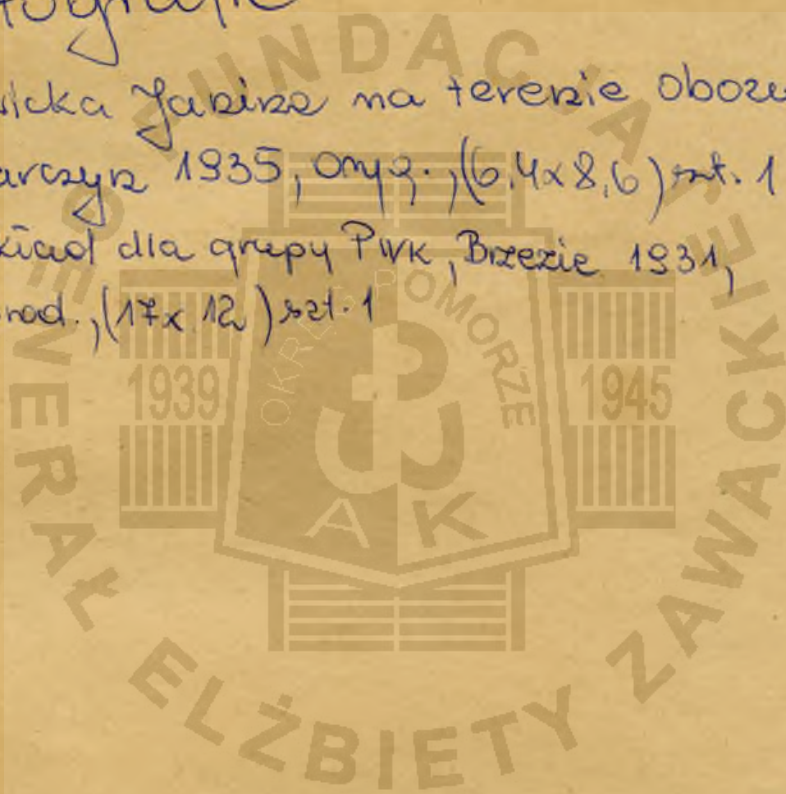 tografie
wicka Janina na terenie obozu
arczyn 1935, oryg., (6,4x8,6) szt. 1
kład dla grupy PWK, Brzezie 1931,
rod., (17x12) szt. 1
FUNDACJA
GENERAŁ ELŻBIETY ZAWACKIEJ
OKRĘG POMORZE
1939
1945
AK